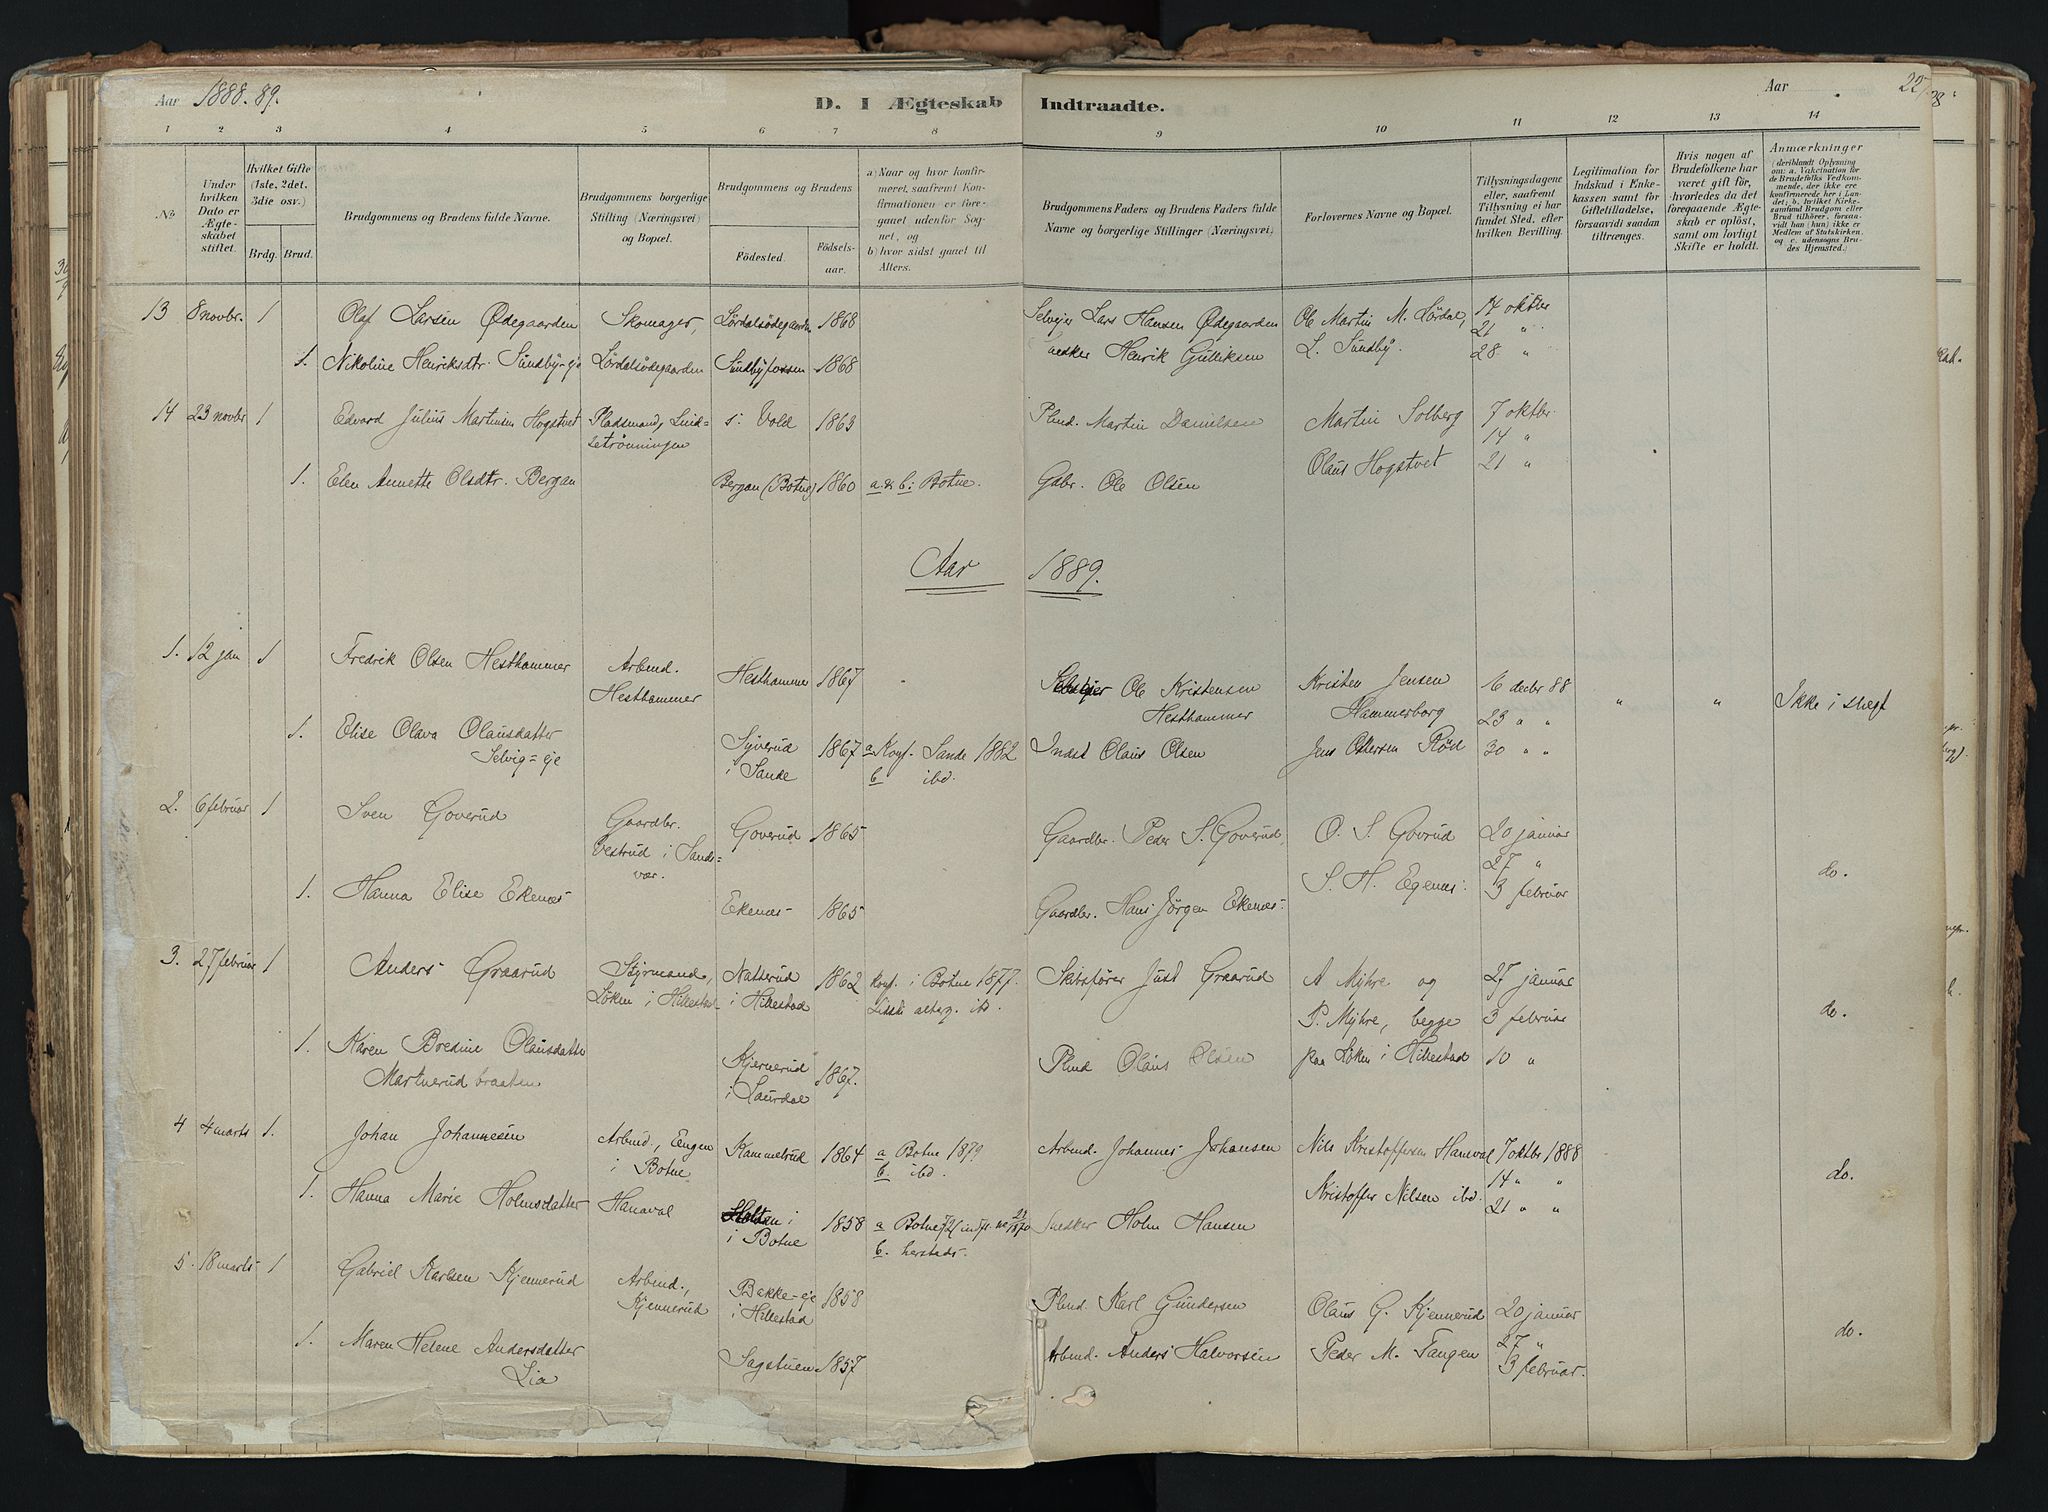 Aar 1888. 89.
D. I Ægteskab Indtraadte.
Aar
1 2 3 4 5 6 7 8 9 10 11 12 13 14
No
Under hvilken Dato er Ægteskabet stiftet.
Hvilket Gifte (1ste, 2det, 3die osv.)
Brdg. Brud.
Brudgommens og Brudens fulde Navne.
Brudgommens borgerlige Stilling (Næringsvei) og Bopæl.
Brudgommens og Brudens
Fødested. Fødsels-aar.
a) Naar og hvor konfirmeret, saafremt Konfirmationen er foregaaet udenfor Sognet, og
b) hvor sidst gaaet til Alters.
Brudgommens Faders og Brudens Faders fulde Navne og borgerlige Stillinger (Næringsvei).
Forlovernes Navne og Bopæl.
Tillysningsdagene eller, saafremt Tillysning ei har fundet Sted, efter hvilken Bevilling.
Legitimation for Indskud i Enkekassen samt for Giftetilladelse, forsaavidt saadan tiltrænges.
Hvis nogen af Brudefolkene har været gift før, hvorledes da det foregaaende Ægteskab er opløst, samt om lovligt Skifte er holdt.
Anmærkninger
(deriblandt Oplysning om: a. Vakcination for de Brudefolks Vedkommende, der ikke ere konfirmerede her i Landet; b. hvilket Kirkesamfund Brudgom eller Brud tilhører, forsaavidt han (hun) ikke er Medlem af Statskirken, og c. udensogns Brudes Hjemsted.)
13 8 novbr. 1 Olaf Larsen Ødegaarden Skomager, Lørdalsødegaarden 1868 Selveier Lars Hansen Ødegaarden Ole Martin M. Lørdal, 14 oktber
21 "
1. Nikoline Henriksdtr. Sundby-eje Lørdalsødegaarden Sundbyfossen 1868 Snedker Henrik Gulliksen L. Sundby. 28 "
14 23 novbr 1 Edvard Julius Martinsen Hogstvet Pladsmand, Lind= s. Vold 1863 Plmd. Martin Danielsen Martin Solberg 7 oktbr.
setrønningen 14 "
1. Elen Annette Olsdtr. Bergan Bergan (Botne) 1860 a & b: Botne. Gbr. Ole Olsen Olaus Hogstvet 21 "
Aar 1889.
1. 12 jan 1 Fredrik Olsen Hesthammer Arbmd. Hesthammer 1867 Selveier Ole Kristensen Kristen Jensen 16 decbr 88 " " Ikke i slægt
Hesthammer Hesthammer Hammerborg 23 " "
1. Elise Olava Olausdatter Syverud 1867 a Konf. Sande 1882 Indst Olaus Olsen Jens Ottersen Rød 30 " "
Selvig=eje i Sande b ibd.
2. 6 februar 1 Sven Goverud Gaardbr. Goverud 1865 Gaardbr. Peder S. Goverud, O. S. Govrud 20 januar
Vestrud i Sands= 27 " do.
vær.
1. Hanna Elise Ekenæs Ekenæs 1865 Gaardbr. Hans Jørgen Ekenæs. S. H. Egenæs. 3 februar
3. 27 februar 1 Anders Graarud Styrmand, Natterud 1862 Konf. i Botne 1877. Skibsfører Just Graarud A Myhre og 27 januar
Løken i Hillestad i Hillestad Sidst alterg. ibd. P. Myhre, begge 3 februar do.
1. Karen Bredine Olausdatter Kjennerud 1867. Plmd Olaus Olsen paa Løken i Hillestad 10 "
Martnerud braaten i Laurdal
4 4 marts 1. Johan Johannesen Arbmd., Engen Kammelrud 1864 a Botne 1879 Arbmd. Johannes Johansen Nils Kristoffersen Hanaval 7 oktbr 1888
i Botne b. ibd. 14 " " do.
1. Hanna Marie Holmsdatter Hanaval Holtan i 1858 a Botne Snedker Holm Hansen Kristoffer Nilsen ibd. 21 " "
i Botne b. hersteds.
5. 18 marts 1 Gabriel Karlsen Kjennerud Arbmd., Bakke-eje 1858 Plmd. Karl Gundersen Olaus G. Kjennerud 20 januar
Kjennerud i Hillestad 27 " do.
1. Maren Helene Andersdatter Sagstuen 1857 Arbmd. Anders Halvorsen Peder M. Tangen 3 februar.
Lia